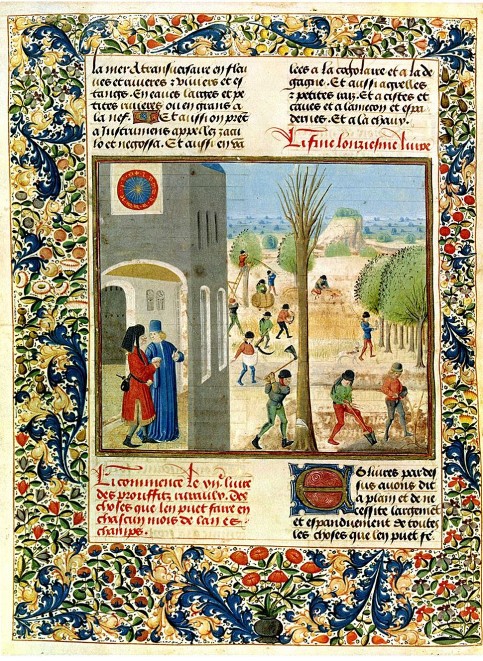 la mer & transuersaire en fleu
ues et riuieres & viuiers et es
tangs. En eaues larges et pe
tites riuieres ou en grans a
la nef. Et aussi on prent
a Instrumens appellez
lo et negossa. Et aussi en va
lees a la et a la de
gagne. Et aussi
& petites raiz. Et a cistes et
caues et a lamecon et espa
dernes. Et a la chaux.
Cy fine lonziesme liure
Cy commence le xii liure
des prouffitz ruraulx. Des
choses que len puet faire en
chascun mois de lan es
champs.
Es liures par des
sus auons dit
a plain et de ne
cessite largement
et espanduement de toutes
les choses que len puet